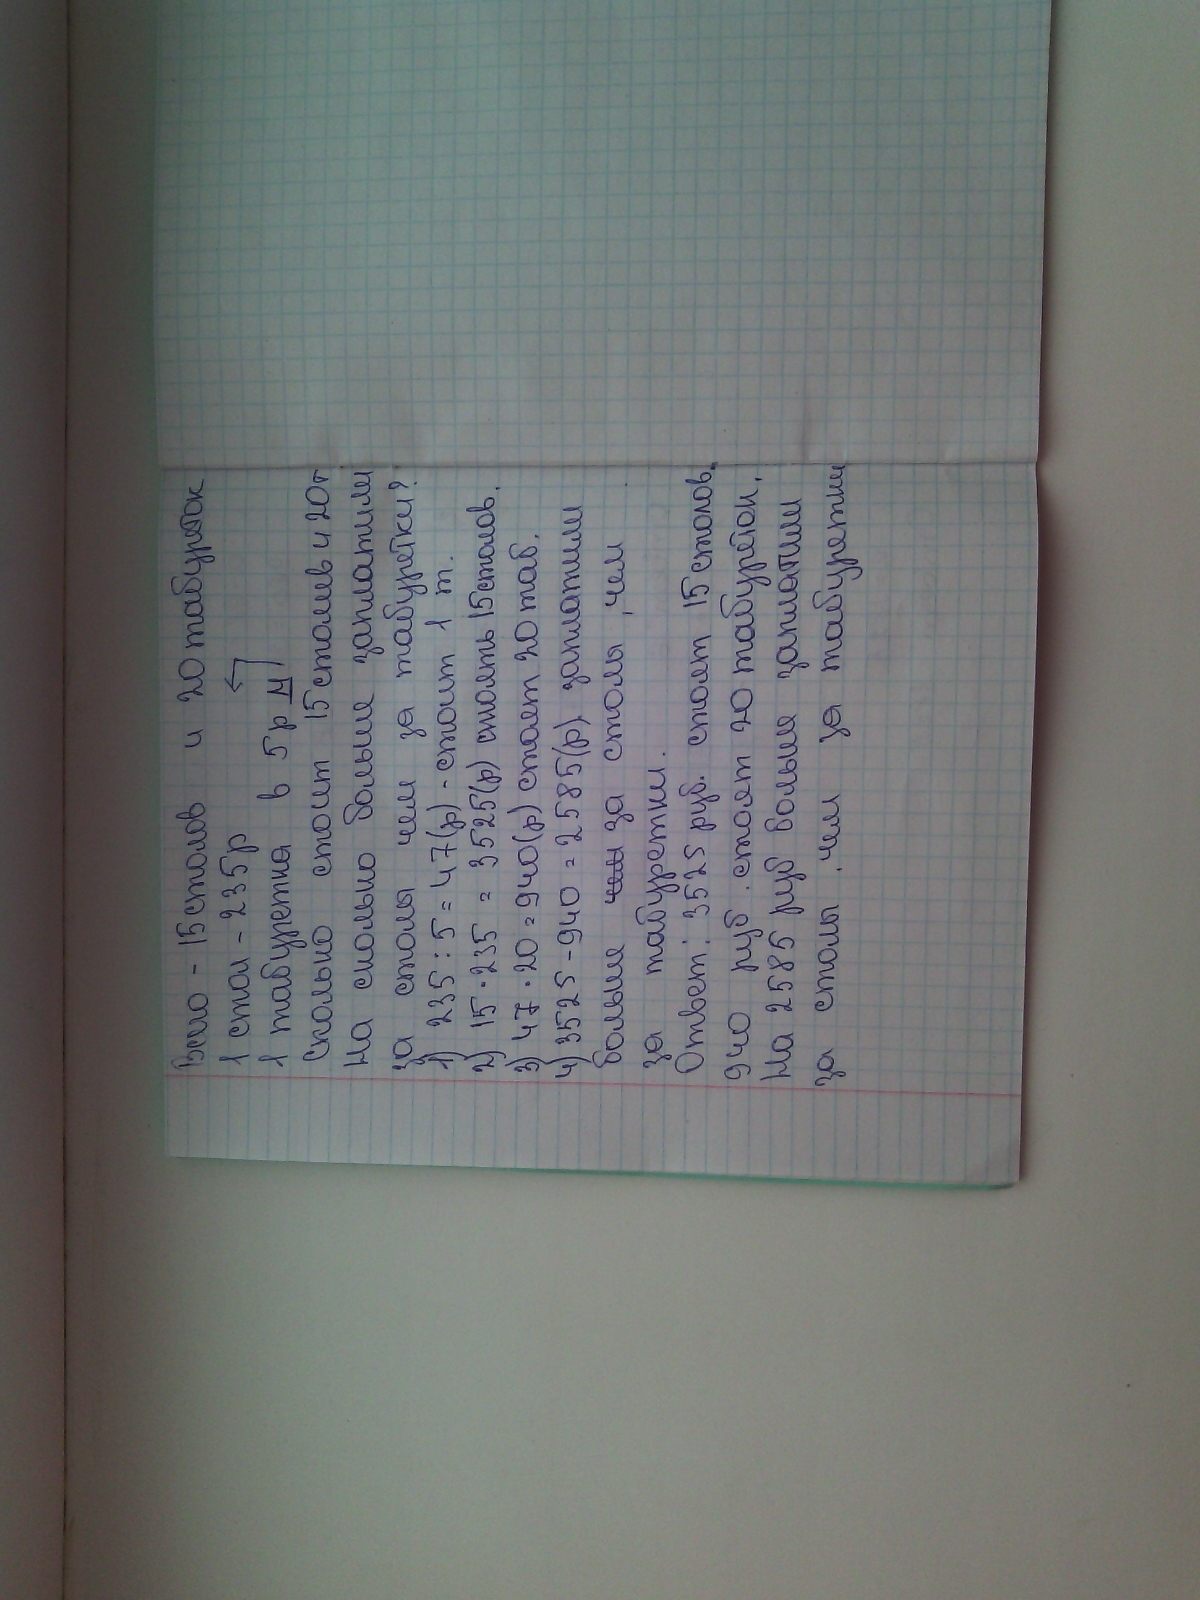 Всего - 15 столов и 20 табуреток
1 стол - 235р
1 табуретка в 5р М
Сколько стоит 15 столов и 20т
На сколько больше заплатили
за столы чем за табуретки?
1) 235 : 5 = 47(р) - стоит 1 т.
2) 15 · 235 = 3525(р) стоять 15 столов.
3) 47 · 20 = 940(р) стоят 20 таб.
4) 3525 - 940 = 2585(р) заплатили
больше за столы, чем
за табуретки.
Ответ: 3525 руб. стоят 15 столов,
940 руб. стоят 20 табуреток,
На 2585 руб больше заплатили
за столы, чем за табуретки